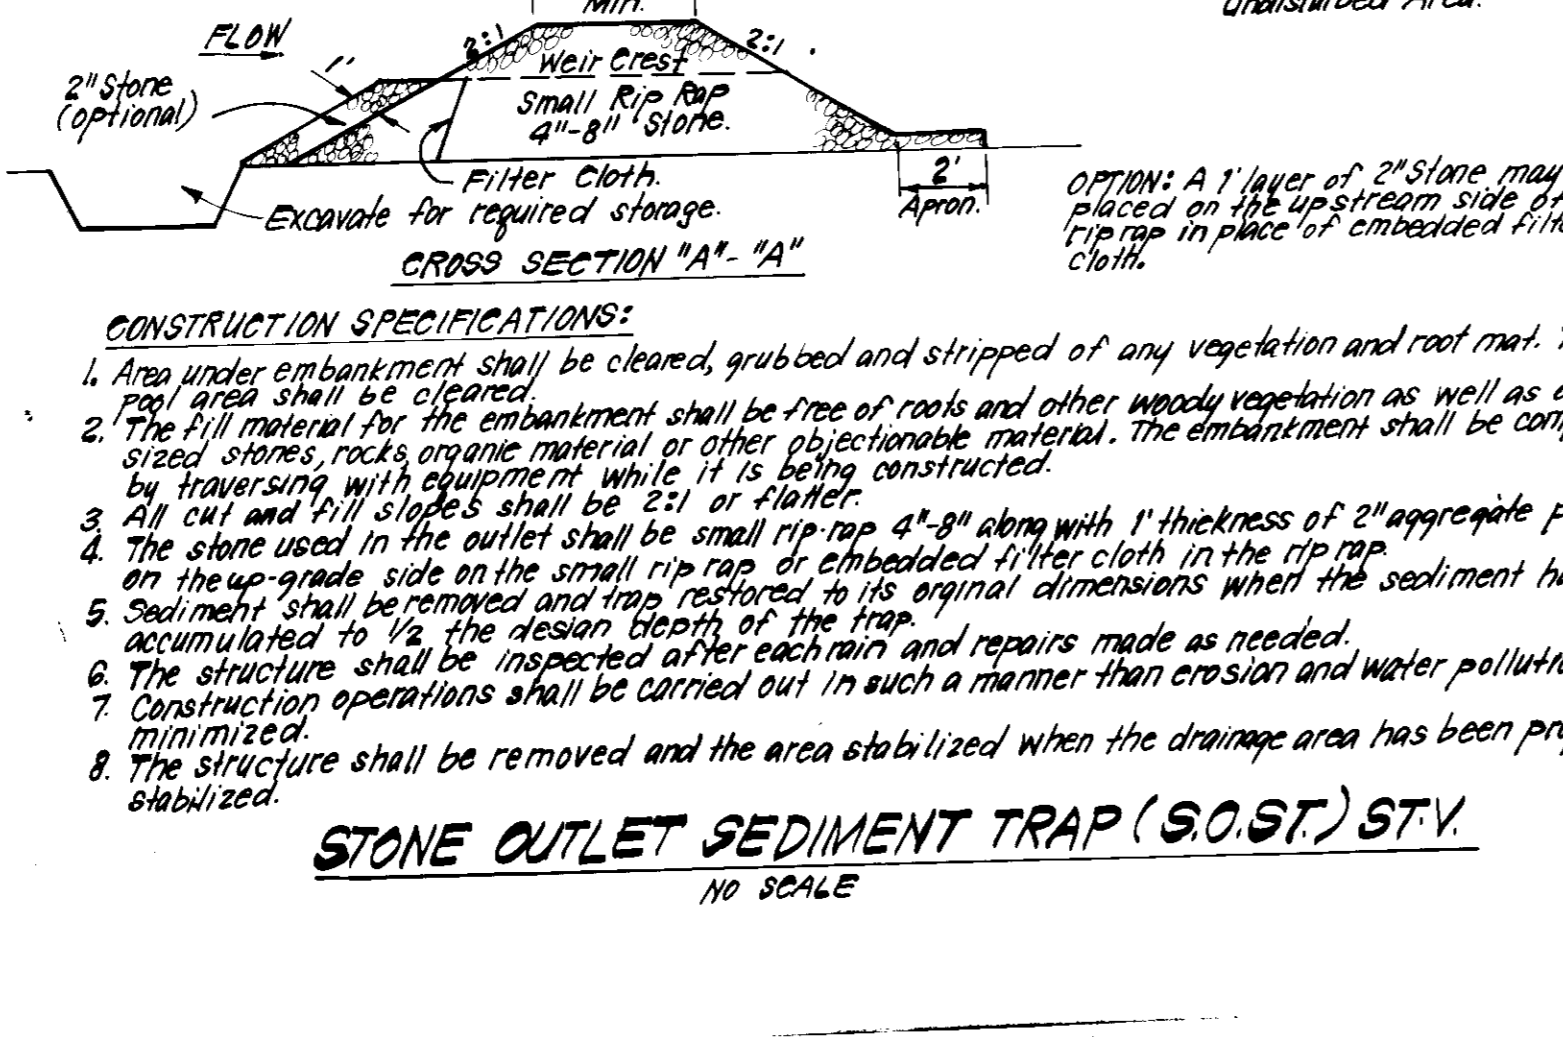 Min.
Undisturbed Area.
FLOW
2:1
2:1
1'
Weir Crest
2" Stone
(optional)
Small Rip Rap
4"-8" Stone.
Filter Cloth.
2'
Apron.
Excavate for required storage.
OPTION: A 1' layer of 2" Stone may
placed on the upstream side of
rip rap in place of embedded filte
cloth.
CROSS SECTION "A"-"A"
CONSTRUCTION SPECIFICATIONS:
1. Area under embankment shall be cleared, grubbed and stripped of any vegetation and root mat. T
pool area shall be cleared.
2. The fill material for the embankment shall be free of roots and other woody vegetation as well as o
sized stones, rocks, organic material or other objectionable material. The embankment shall be com
by traversing with equipment while it is being constructed.
3. All cut and fill slopes shall be 2:1 or flatter.
4. The stone used in the outlet shall be small rip-rap 4"-8" along with 1' thickness of 2" aggregate p
on the up-grade side on the small rip rap or embedded filter cloth in the rip rap.
5. Sediment shall be removed and trap restored to its orginal dimensions when the sediment ha
accumulated to 1/2 the design depth of the trap.
6. The structure shall be inspected after each rain and repairs made as needed.
7. Construction operations shall be carried out in such a manner than erosion and water pollutio
minimized.
8. The structure shall be removed and the area stabilized when the drainage area has been pro
stabilized.
STONE OUTLET SEDIMENT TRAP (S.O.S.T.) ST-V.
NO SCALE